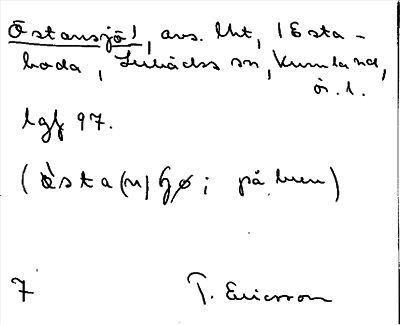 Östansjö!, avs. lht, 1 Esta-
boda, Lerbäcks sn, Kumla hd,
ör. l.
lgf 97.
(östa(n) ; på, )
7 T. Ericsson